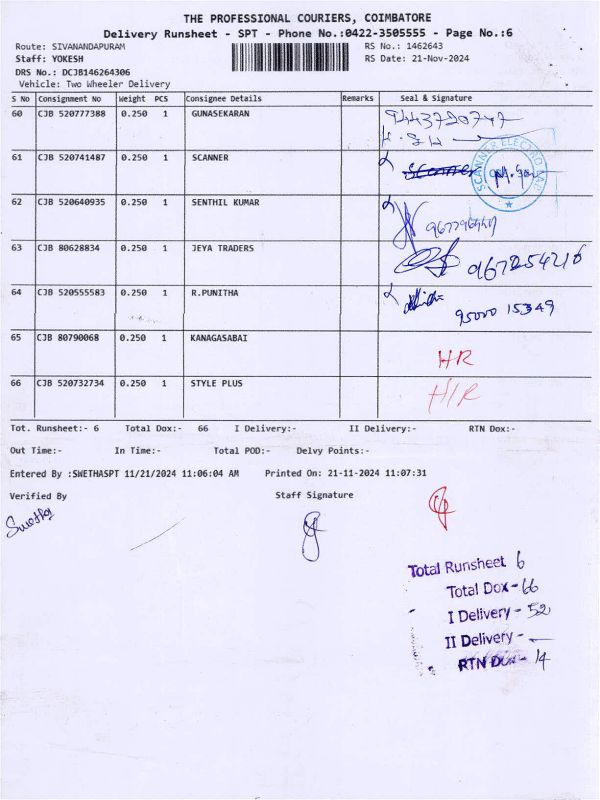 THE PROFESSIONAL COURIERS, COIMBATORE
Delivery Runsheet - SPT - Phone No.:0422-3505555 - Page No.:6
Route: SIVANANDAPURAM RS No.: 1462643
Staff: YOKESH RS Date: 21-Nov-2024
DRS No.: DCJB146264306
Vehicle: Two Wheeler Delivery
S No Consignment No Weight PCS Consignee Details Remarks Seal & Signature
60 CJB 520777388 0.250 1 GUNASEKARAN
61 CJB 520741487 0.250 1 SCANNER
SCANNER ELECTRO
62 CJB 520640935 0.250 1 SENTHIL KUMAR
63 CJB 80628834 0.250 1 JEYA TRADERS
9672254216
64 CJB 520555583 0.250 1 R.PUNITHA
95000 15349
65 CJB 80790068 0.250 1 KANAGASABAI
HR
66 CJB 520732734 0.250 1 STYLE PLUS
H/R
Tot. Runsheet:- 6 Total Dox:- 66 I Delivery:- II Delivery:- RTN Dox:-
Out Time:- In Time:- Total POD:- Delvy Points:-
Entered By :SWETHASPT 11/21/2024 11:06:04 AM Printed On: 21-11-2024 11:07:31
Verified By Staff Signature
Swetha
Total Runsheet 6
Total Dox- 66
I Delivery - 52
II Delivery - —
RTN Dox - 14